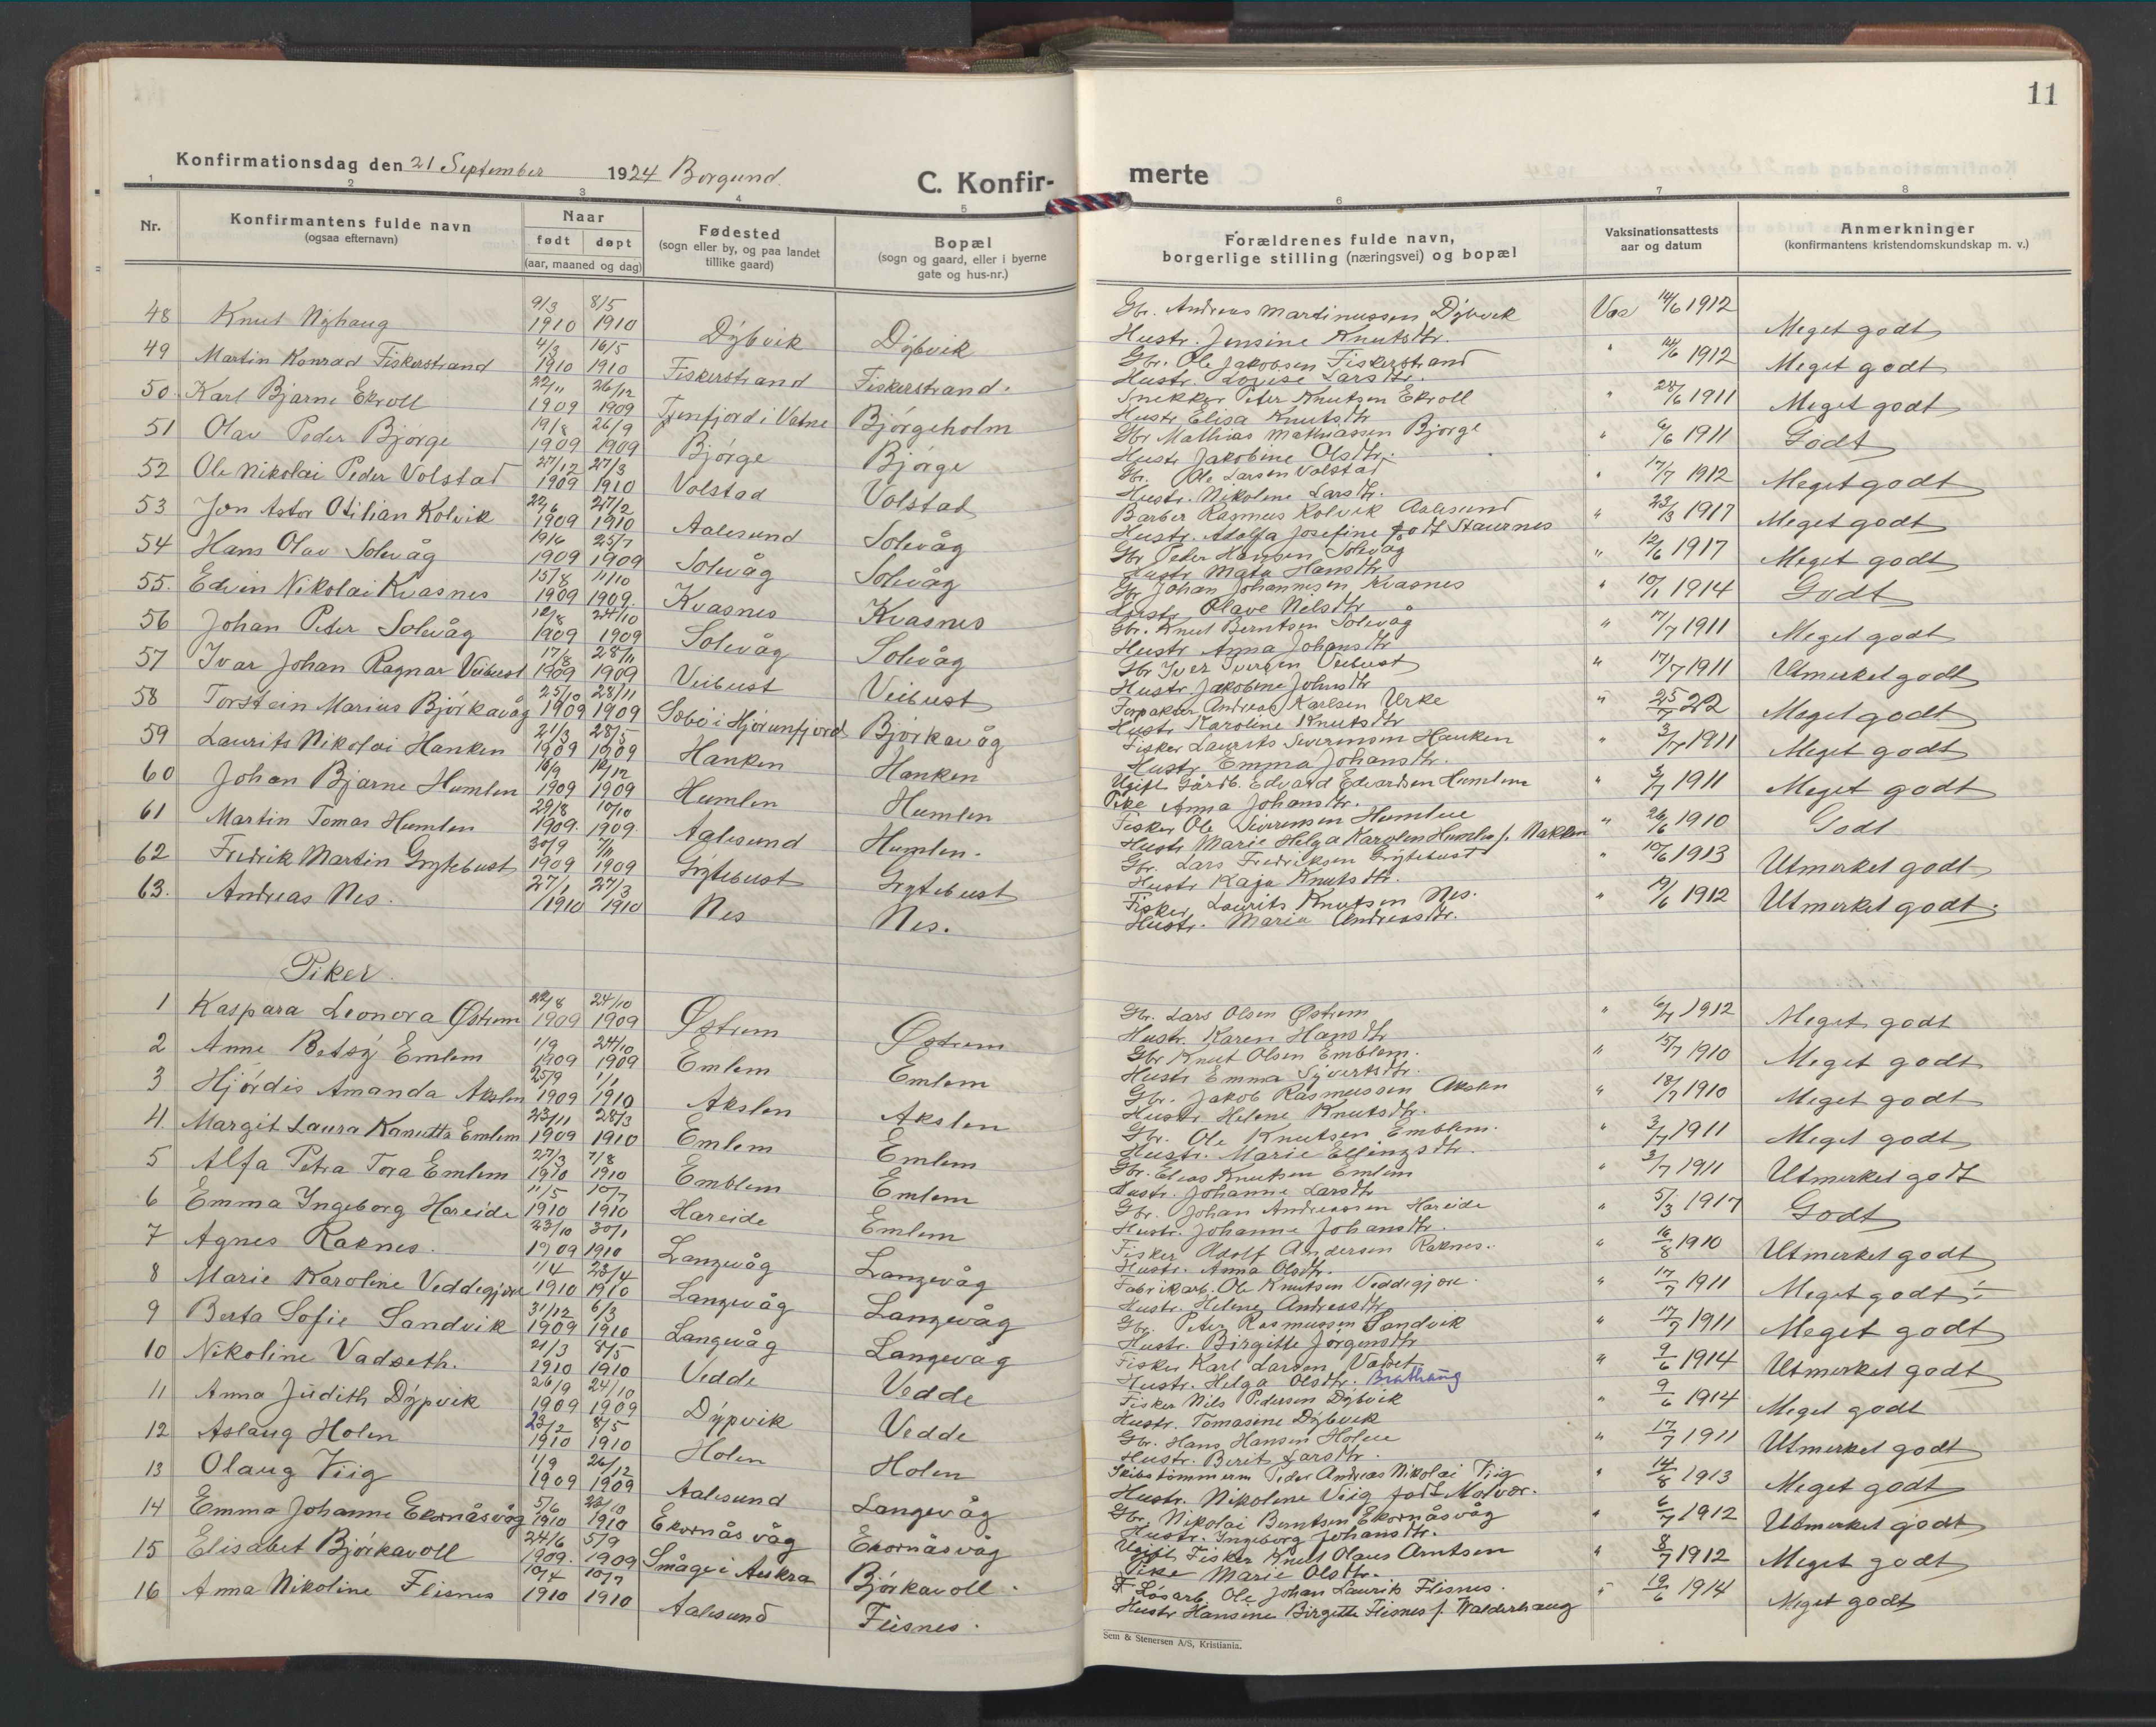 11
Konfirmationsdag den 21 September 1924 Borgund.
C. Konfir- merte
1 2 3 4 5 6 7 8
Nr.
Konfirmantens fulde navn
(ogsaa efternavn)
Naar
født døpt
(aar, maaned og dag)
Fødested
(sogn eller by, og paa landet
tillike gaard)
Bopæl
(sogn og gaard, eller i byerne
gate og hus-nr.)
Forældrenes fulde navn,
borgerlige stilling (næringsvei) og bopæl
Vaksinationsattests
aar og datum
Anmerkninger
(konfirmantens kristendomskundskap m. v.)
48 Knut Nyhaug 9/3 1910 8/5 1910 Dybvik Dybvik Gbr. Andreas Martinussen Dybvik Vas 14/6 1912 Meget godt
Hustr. Jensine Knutsdtr.
49 Martin Konrad Fiskerstrand 4/3 1910 16/5 1910 Fiskerstrand Fiskerstrand. Gbr. Ole Jakobsen Fiskerstrand " 14/6 1912 Meget godt
Hustr. Lovise Larsdtr.
50. Karl Bjarne Ekroll 22/11 1909 26/12 1909 Tjenfjord i Vatne Bjørgeholm Snekker Peter Knutsen Ekroll " 28/6 1911 Meget godt
Hustr Elisa Knutsdtr
51 Olav Peder Bjørge 19/8 1909 26/9 1909 Bjørge Bjørge Gbr Mathias Mathiassen Bjørge " 6/6 1911 Godt
Hustr Jakobine Olsdtr.
52 Ole Nikolai Peder Volstad 27/12 1909 27/3 1910 Volstad Volstad Gbr. Ole Larsen Volstad " 17/7 1912 Meget godt
Hustr. Nikoline Larsdtr.
53 Jon Astor Otilian Kolvik 22/6 1909 27/2 1910 Aalesund Solevåg Barber Rasmus Kolvik Aalesund " 23/3 1917 Meget godt
Hustr. Adolfa Josefine født Staurnes
54 Hans Olav Solevåg 19/6 1909 25/7 1909 Solevåg Solevåg Gbr Peter Hansen Solevåg " 12/6 1917 Meget godt
Hustr Mata Hansdtr
55. Edvin Nikolai Kvasnes 15/8 1909 11/10 1909. Kvasnes Kvasnes Gbr Johan Johannesen Kvasnes " 10/1 1914 Godt
Hustr Olave Nilsdtr
56 Johan Peter Solevåg 12/8 1909 24/10 1909 Solevåg Solevåg Gbr. Knut Berntsen Solevåg " 17/7 1911 Meget godt
Hustr Anna Johansdtr
57 Ivar Johan Ragnar Veibust 17/8 1909 28/11 1909 Veibust Veibust Gbr Iver Iversen Veibust " 17/7 1911 Utmerket godt
Hustr. Jakobine Johnsdtr
58 Torstein Marius Bjørkavåg 25/10 1909 28/11 1909 Sæbø i Hjørunfjord Bjørkavåg Forpakter Andreas Karlsen Urke " 25/7 22 Meget godt
Hustr Karoline Knutsdtr
59 Laurits Nikolai Hanken 21/3 1909 28/5 1909 Hanken Hanken Fisker Laurits Severinsen Hanken " 3/7 1911 Meget godt
Hustr Emma Johansdtr.
60 Johan Bjarne Humlen 16/9 1909 12/12 1909 Humlen Humlen Ugift Gårdb. Edvard Edvardsen Humlen " 3/7 1911 Meget godt
Pike Anna Johansdtr.
61 Martin Tomas Humlen 29/8 1909. 10/10 1909. Aalesund Humlen. Fisker Ole Severinsen Humlen " 26/6 1910 Godt
Hustr Marie Helga Karolen Humlen f. Nakken
62 Fredrik Martin Grytebust 30/9 1909 7/11 1909 Grytebust Grytebust Gbr. Lars Fredriksen Grytebust " 10/6 1913 Utmerket godt
Hustr Kaja Knutsdtr.
63. Andreas Nes. 27/1 1910 27/3 1910 Nes Nes. Fisker Laurits Knutsen Nes. " 19/6 1912 Utmerket godt.
Hustr. Maria Andreasdtr.
Piker.
1 Kaspara Leonora Østrem 22/8 1909 24/10 1909 Østrem Østrem Gbr. Lars Olsen Østrem " 6/7 1912 Meget godt
Hustr. Karen Hansdtr
2 Anne Betsy Emlem 1/9 1909 24/10 1909 Emlem Emlem Gbr Knut Olsen Emblem. " 15/7 1910 Meget godt
Hustr Emma Syvertsdtr.
3 Hjørdis Amanda Akslen 25/9 1909 1/1 1910 Akslen Akslen Gbr. Jakob Rasmussen Akslen " 18/7 1910 Meget godt
Hustr Helene Knutsdtr.
4 Margit Laura Kanutta Emlem 23/11 1909 28/3 1910 Emlem Emlem Gbr. Ole Knutsen Emblem. " 3/7 1911 Meget godt
Hustr. Marie Ellingsdtr.
5 Alfa Petra Tora Emlem 27/3 1910 7/8 1910 Emblem Emlem Gbr. Elias Knutsen Emlem " 3/7 1911 Utmerket godt
Hustr. Johanne Larsdtr
6 Emma Ingeborg Hareide 11/5 1910 10/7 1910 Hareide Emlem Gbr. Johan Andreassen Hareide " 5/3 1917 Godt
Hustr. Johanne Johansdtr.
7 Agnes Raknes. 23/10 1909 30/1 1910 Langevåg Langevåg Fisker Adolf Andersen Raknes. " 16/8 1910 Utmerket godt
Hustr. Anna Olsdtr.
8 Marie Karoline Veddegjære 1/4 1910 23/4 1910 Langevåg Langevåg Fabrikarb. Ole Knutsen Veddegjære. " 17/7 1911 Meget godt ÷
Hustr. Helene Andreasdtr
9 Berta Sofie Sandvik 31/12 1909 6/3 1910 Langevåg Langevåg Gbr. Peter Rasmussen Sandvik " 17/7 1911 Meget godt
Hustr. Birgitte Jørgensdtr
10 Nikoline Vadseth. 21/3 1910 8/5 1910 Vedde Vedde Fisker Karl Larsen Vadset " 9/6 1914 Utmerket godt
Hustr. Helga Olsdtr. Brathaug
11 Anna Judith Dypvik 26/9 1909 24/10 1909 Dypvik Vedde Fisker Nils Pedersen Dybvik " 9/6 1914 Meget godt
Hustr. Tomasine Dybvik
12 Aslaug Holen 23/2 1910 8/5 1910 Holen Holen Gbr. Hans Hansen Holen " 17/7 1911 Utmerket godt
Hustr. Berit Larsdtr.
13 Olaug Viig 1/9 1909 26/12 1909 Aalesund Langevåg Skibstømmerm Peder Andreas Nikolai Viig " 14/8 1913 Meget godt
Hustr. Nikoline Viig født Molvær.
14 Emma Johanne Ekornåsvåg 5/6 1910 23/10 1910 Ekornåsvåg Ekornåsvåg Gbr. Nikolai Berntsen Ekornåsvåg " 6/7 1912 Utmerket godt
Hustr. Ingeborg Johansdtr.
15 Elisabet Bjørkavoll 24/6 1909. 5/9 1909 Småge i Aukra Bjørkavoll. Ugift Fisker Knut Olaus Arntsen " 8/7 1912 Meget godt
Pike Marie Olsdtr.
16 Anna Nikoline Flisnes 10/4 1910 10/7 1910 Aalesund Flisnes. Løsarb. Ole Johan Laurits Flisnes. " 19/6 1914 Meget godt
Hustr Hansine Birgitte Flisnes f. Walderhaug
Sem & Stenersen A/S, Kristiania.